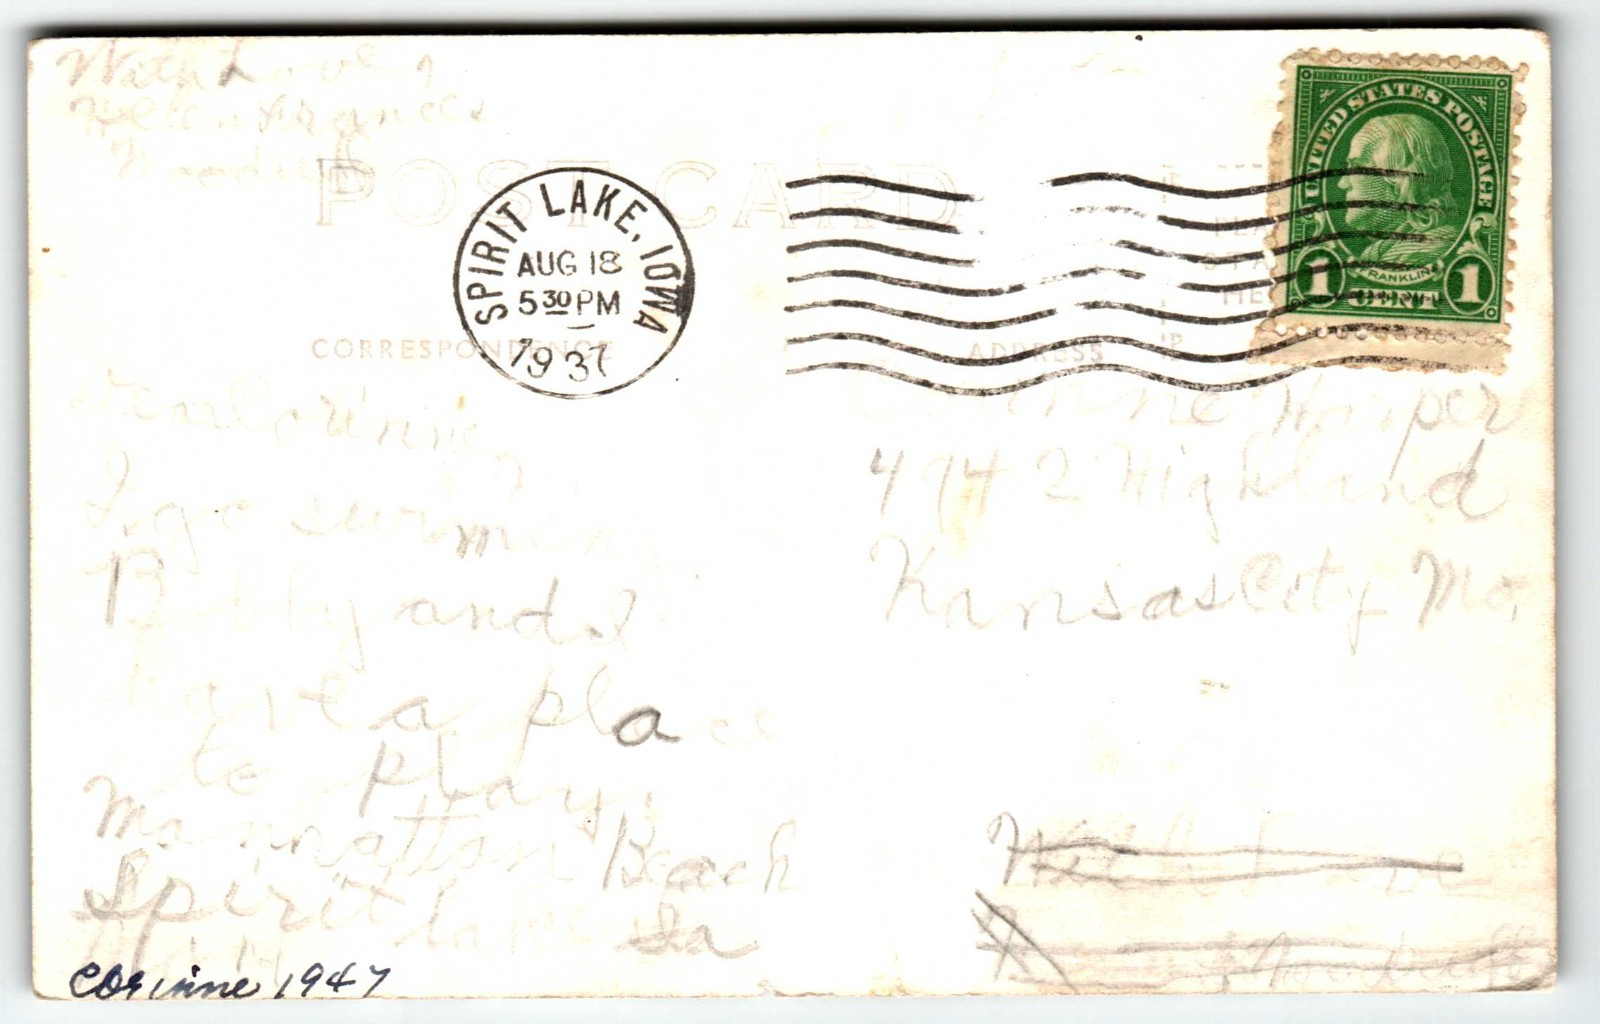 With Love,
Helen Frances
POST CARD
SPIRIT LAKE, IOWA
AUG 18
5 30 PM
1937
UNITED STATES POSTAGE
FRANKLIN
1 CENT 1
CORRESPONDENCE
ADDRESS
Dear Corinne
I go swiming
Bobby and I
have a place
to play.
Manhattan Beach
Spirit Lake Ia
Corinne 1947
Corinne Harper
4942 Highland
Kansas City Mo.
With Love